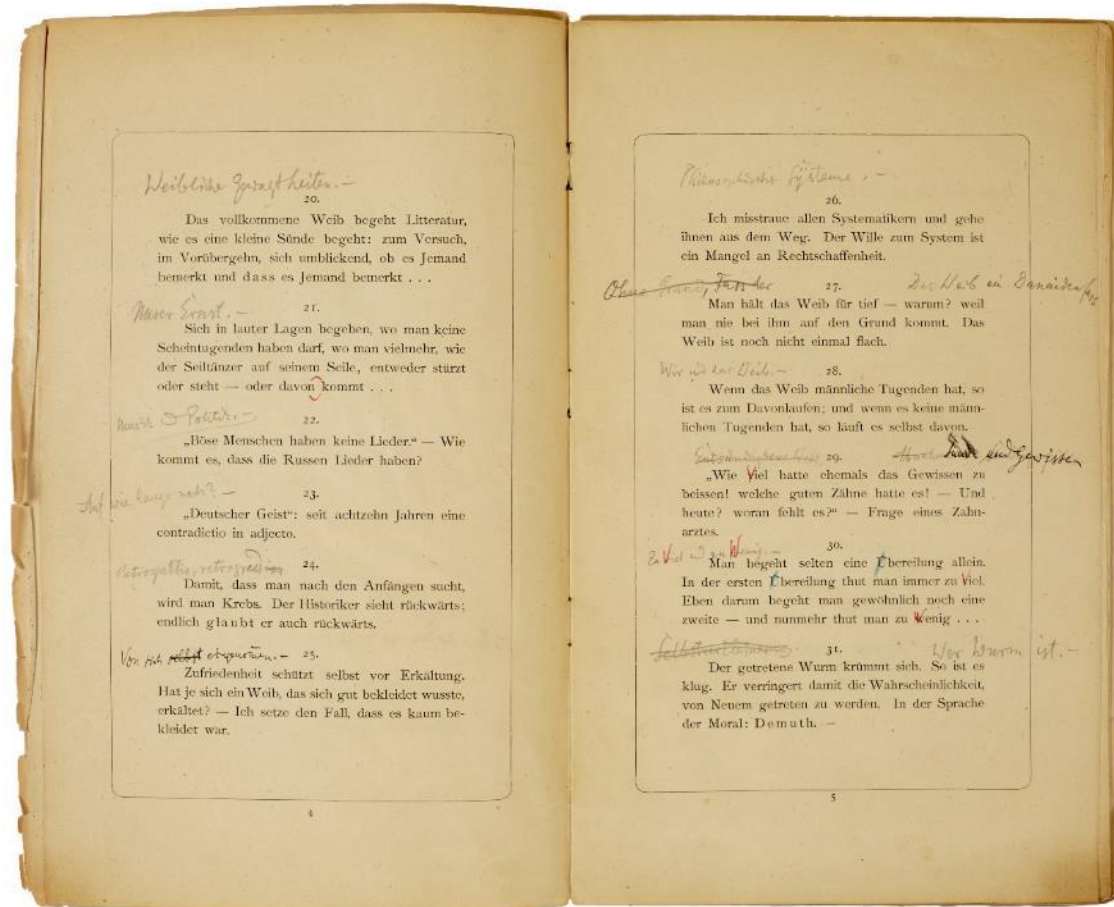 Weibliche Gewagtheiten. –
20.
Das vollkommene Weib begeht Litteratur,
wie es eine kleine Sünde begeht: zum Versuch,
im Vorübergehn, sich umblickend, ob es Jemand
bemerkt und dass es Jemand bemerkt . . .
Unser Ernst. –
21.
Sich in lauter Lagen begeben, wo man keine
Scheintugenden haben darf, wo man vielmehr, wie
der Seiltänzer auf seinem Seile, entweder stürzt
oder steht — oder davon kommt . . .
Politik. –
22.
„Böse Menschen haben keine Lieder.“ — Wie
kommt es, dass die Russen Lieder haben?
Auf wie lange noch? –
23.
„Deutscher Geist“: seit achtzehn Jahren eine
contradictio in adjecto.
24.
Damit, dass man nach den Anfängen sucht,
wird man Krebs. Der Historiker sieht rückwärts;
endlich glaubt er auch rückwärts.
Von sich selbst – 25.
Zufriedenheit schützt selbst vor Erkältung.
Hat je sich ein Weib, das sich gut bekleidet wusste,
erkältet? — Ich setze den Fall, dass es kaum be-
kleidet war.
4
Philosophische Systeme. –
26.
Ich misstraue allen Systematikern und gehe
ihnen aus dem Weg. Der Wille zum System ist
ein Mangel an Rechtschaffenheit.
Ohne 27. Das Weib ein Danaidenfass
Man hält das Weib für tief — warum? weil
man nie bei ihm auf den Grund kommt. Das
Weib ist noch nicht einmal flach.
Wir und das Weib. – 28.
Wenn das Weib männliche Tugenden hat, so
ist es zum Davonlaufen; und wenn es keine männ-
lichen Tugenden hat, so läuft es selbst davon.
29. und Gewissen
„Wie Viel hatte ehemals das Gewissen zu
beissen! welche guten Zähne hatte es! — Und
heute? woran fehlt es?“ — Frage eines Zahn-
arztes.
30.
Zu Viel und zu Wenig. –
Man begeht selten eine Übereilung allein.
In der ersten Übereilung thut man immer zu Viel.
Eben darum begeht man gewöhnlich noch eine
zweite — und nunmehr thut man zu Wenig . . .
31. Wer Wurm ist. –
Der getretene Wurm krümmt sich. So ist es
klug. Er verringert damit die Wahrscheinlichkeit,
von Neuem getreten zu werden. In der Sprache
der Moral: Demuth. –
5